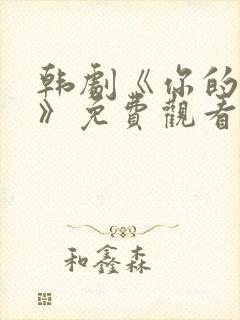 韩劇《你的
》免費觀看
和鑫森